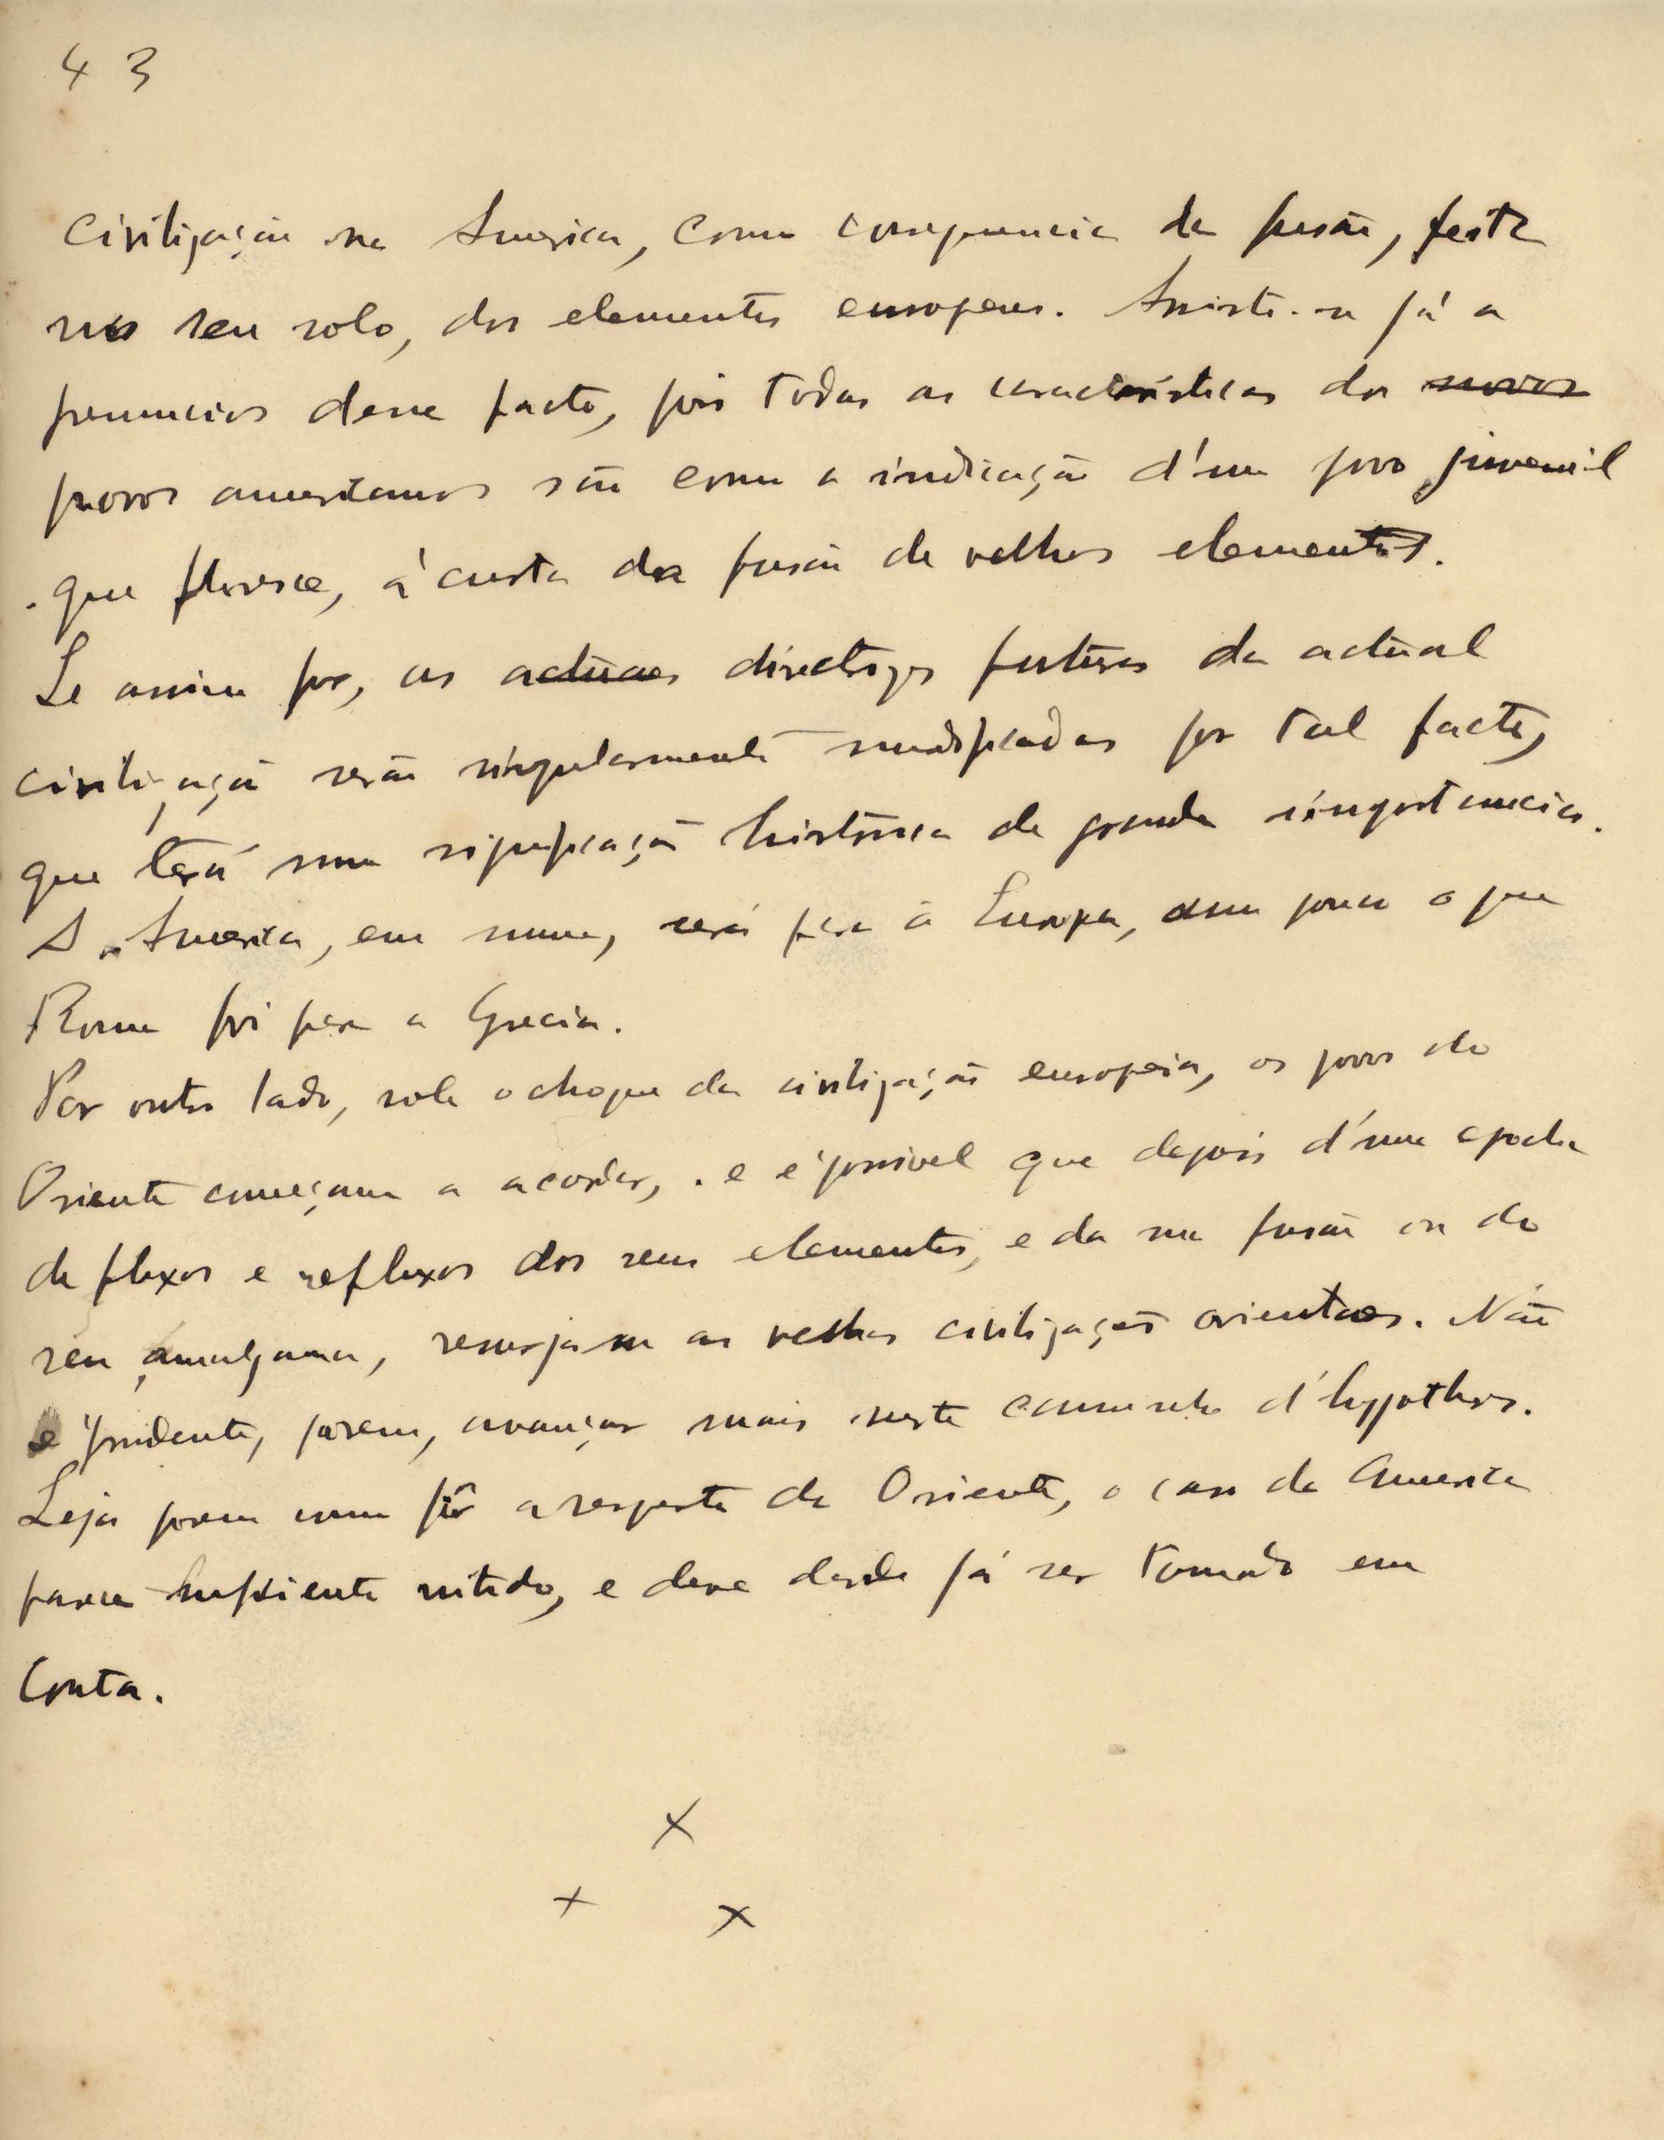 43
civilização na America, como consequencia da fusão, feita
no seu solo, dos elementos europeus. Assiste-se já a
prenuncios desse facto, pois todas as caracteristicas dos novos
povos americanos são como a indicação d'um povo juvenil
que floresce, á custa da fusão de velhos elementos.
Se assim for, as actuaes directrizes futuras da actual
civilização serão singularmente modificadas por tal facto,
que terá uma significação historica de grande importancia.
A America, em summa, será para a Europa, um pouco o que
Roma foi para a Grecia.
Por outro lado, sob o choque da civilização europeia, os povos do
Oriente começam a acordar, e é possivel que depois d'uma epocha
de fluxos e refluxos dos seus elementos, e da sua fusão ou do
seu amalgama, resurjam as velhas civilizações orientaes. Não
é prudente, porem, avançar mais neste caminho d'hypotheses.
Seja porem como fôr a respeito do Oriente, o caso da America
parece sufficiente nitido, e deve desde já ser tomado em
conta.
x
x x